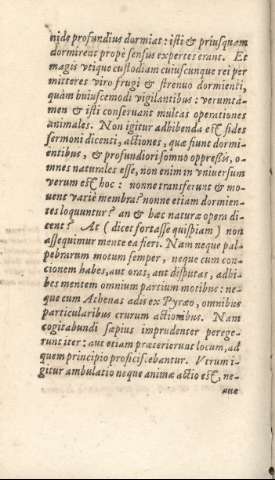 nide profundius dormiat: isti & priusquam
dormirent propè sensus expertes erant. Et
magis vtique custodiam cuiuscunque rei per
mitteres viro frugi & strenuo dormienti,
quàm huiuscemodi vigilantibus: veruntα-
men & isti conseruant multas operationes
animales. Non igitur adhibenda est fides
sermoni dicenti, actiones, quæ fiunt dormi-
entibus, & profundiori somno oppressis, o-
mnes naturales esse, non enim in vniuersum
verum est hoc: nonne transferunt & mo-
uent variè membra? nonne etiam dormien-
tes loquuntur? an & hæc naturæ opera di-
cent? At (dicet fortasse quispiam) non
assequimur mente ea fieri. Nam neque pal-
pebrarum motum semper, neque cum con-
cionem habes, aut oras, aut disputas, adhi-
bes mentem omnium partium motibus: ne-
que cum Athenas adis ex Pyræo, omnibus
particularibus crurum actionibus. Nam
cogitabundi sæpius imprudenter perege-
runt iter: aut etiam præterierunt locum, ad
quem principio proficiscebantur. Vtrum i-
gitur ambulatio neque animæ actio est, ne-
que